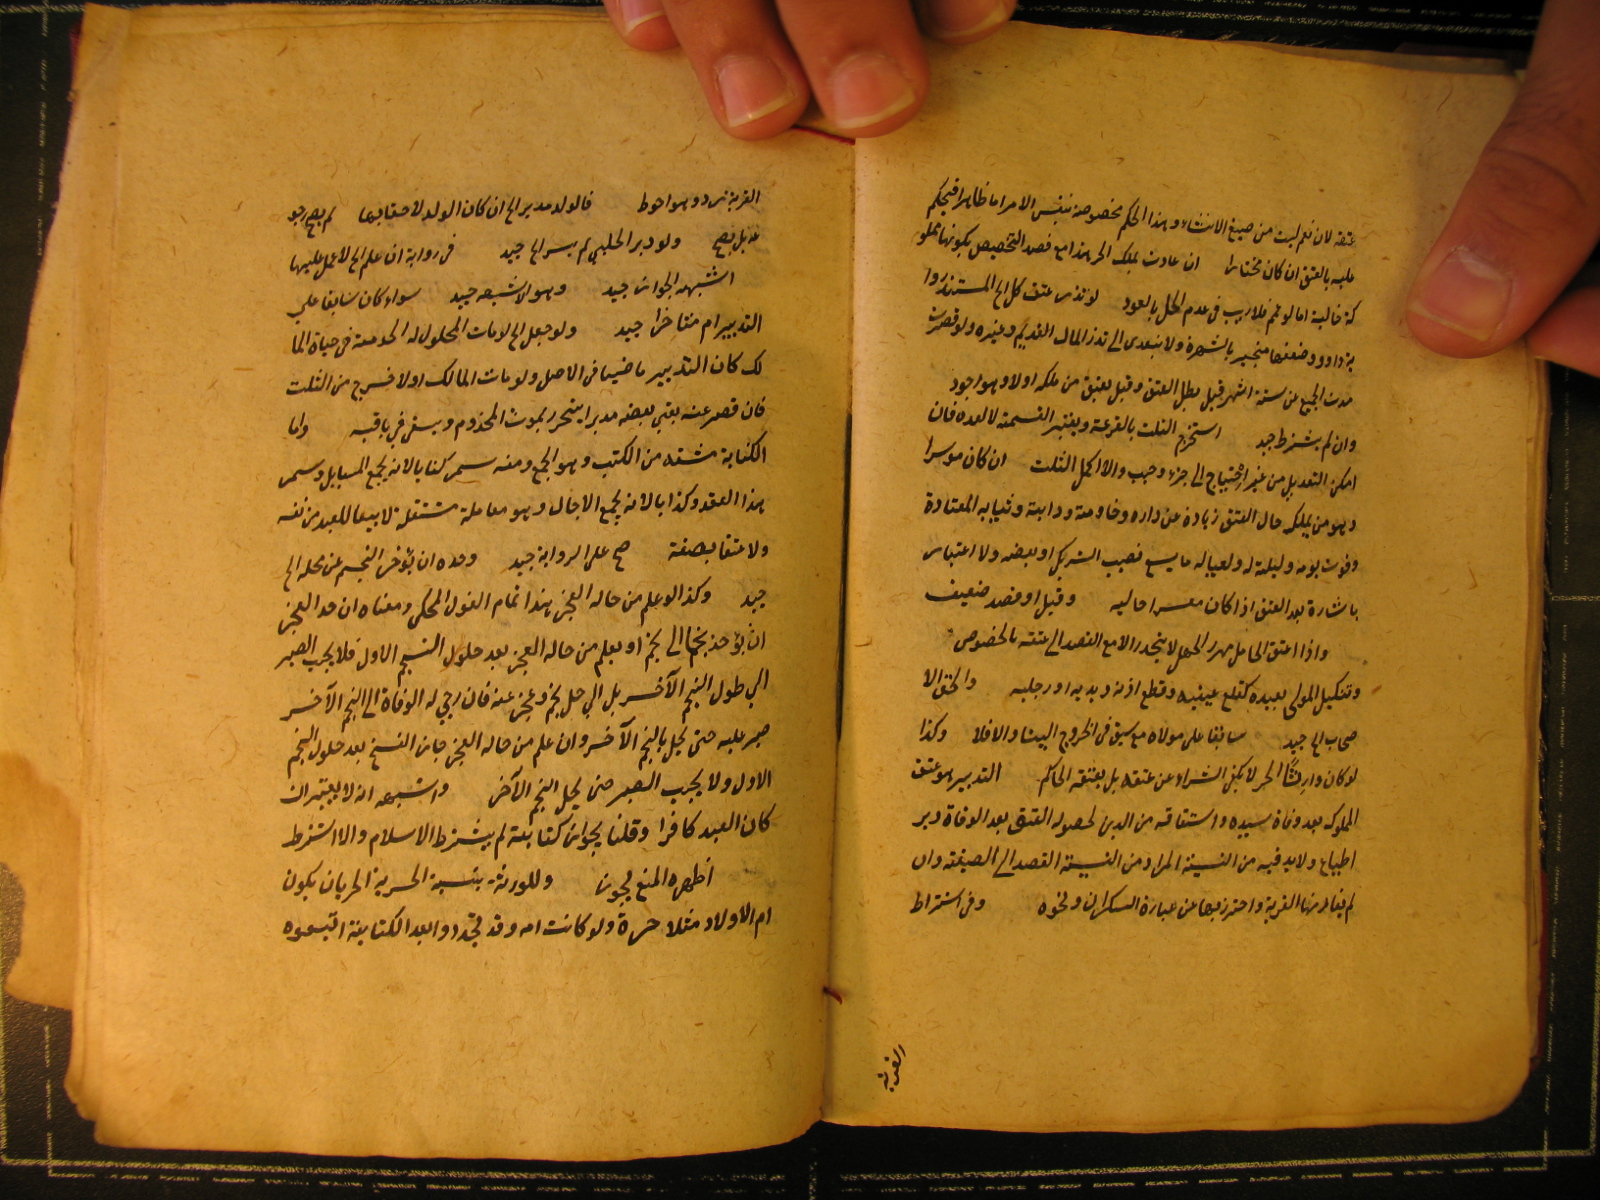 عتقه لان نعم ليست من صيغ الانشاء وهذا الحكم مخصوصة بنفس الامر اما ظاهرا فيحكم
عليه بالعتق ان كان مختارا ان عادت بملك الحر هذا مع قصد التخصيص بكونها مملو
كة حالية اما لو عمم فلا ريب في عدم الحل بالعود لو نذر عتق كل الخ المستند روا
ية داود وضعفها منجبر بالشهرة ولا يتعدى الى نذر المال القديم وغيره ولو قصرت
مدت الجميع عن ستة اشهر قيل بطل العتق وقيل يعتق من ملكه اولا وهو اجود
وان لم يشترط جيد استخرج الثلث بالقرعة ويعتبر القسمة لا لعدده فان
امكن التعديل من غير احتياج الى جزء وجب والا اكمل الثلث ان كان موسرا
وهو من يملك حال العتق زيادة عن داره وخادمه ودابته وثيابه المعتادة
وقوت يومه وليلته له ولعياله ما يسع نصيب الشريك او بعضه ولا اعتبار
باشارة بعد العتق اذا كان معسرا حاليه وقيل او قصد ضعيف
واذا اعتق الحامل مهر الحمل لا يتحرر الا مع القصد الى عتقه بالخصوص
وتنكيل المولى بعبده كقلع عينيه وقطع اذنه ويديه او رجليه والحق الا
صحاب الخ جيد سابقا على مولاه مع سبق في الخروج البينا والافلا وكذا
لو كان وارثا الحر لا يكفي الشراء عن عتقه بل يعتقه الحاكم التدبير هو عتق
المملوك بعد وفاة سيده واشتقاقه من الدبر لحصوله العتق بعد الوفاة دبر
الحياة ولا بد فيه من النية المراد من النية القصد الى الصيغة وان
لم يقارنها القربة واحترز بها عن عبارة السكران ونحوه وفي اشتراط
القربة
القربة تردد وهو احوط فالولد مدبر الخ ان كان الولد لاحقا بها لم يصح رجو
عه بل يصح ولو دبر الحبلى لم يسر الخ جيد في رواية ان علم الخ لا عمل عليها
اشبهه الجواز جيد وهو الاشبه جيد سواء كان سابقا على
التدبير ام متاخرا جيد ولو جعل الخ لو مات المحلول له الخدمة في حياة الما
لك كان التدبير ماضيا في الاصل ولو مات المالك اولا خرج من الثلث
فان قصر عنه بقي بعضه مدبرا يتحرر بموت المخدوم ويسعى في باقيه واما
الكتابة مشتقه من الكتب وهو الجمع ومنه سمي كتابا لانه يجمع المسايل وسمي
هذا العقد وكذا بالانه يجمع الاجال وهو معاملة مستقلة لا بيعا للعبد من نفسه
ولا عتقا بصفة صح على الرواية جيد وحده ان يؤخر النجم عن محله الخ
جيد وكذا لو علم من حاله العجز هذا تمام القول المحكي ومعناه ان حد العجز
ان يؤخذ نجما الى نجم او يعلم من حاله العجز بعد حلول النجم الاول فلا يجب الصبر
الى طول النجم الآخر بل الى حل نجم وعجز عنه فان رجى له الوفاة الى النجم الآخر
صبر عليه حتى يحل بالنجم الآخر وان علم من حاله العجز جاز الفسخ بعد حلول النجم
الاول ولا يجب الصبر حتى يحل النجم الآخر واشبهه انه لا يعتبر ان
كان العبد كافرا وقلنا بجواز كتابته لم يشترط الاسلام والا اشترط
اظهره المنع يجوز وللورثة بنسبة الحرية الخ بان يكون
ام الاولاد مثلا حرة ولو كانت امه وقد تجددوا بعد الكتابة اتبعوه